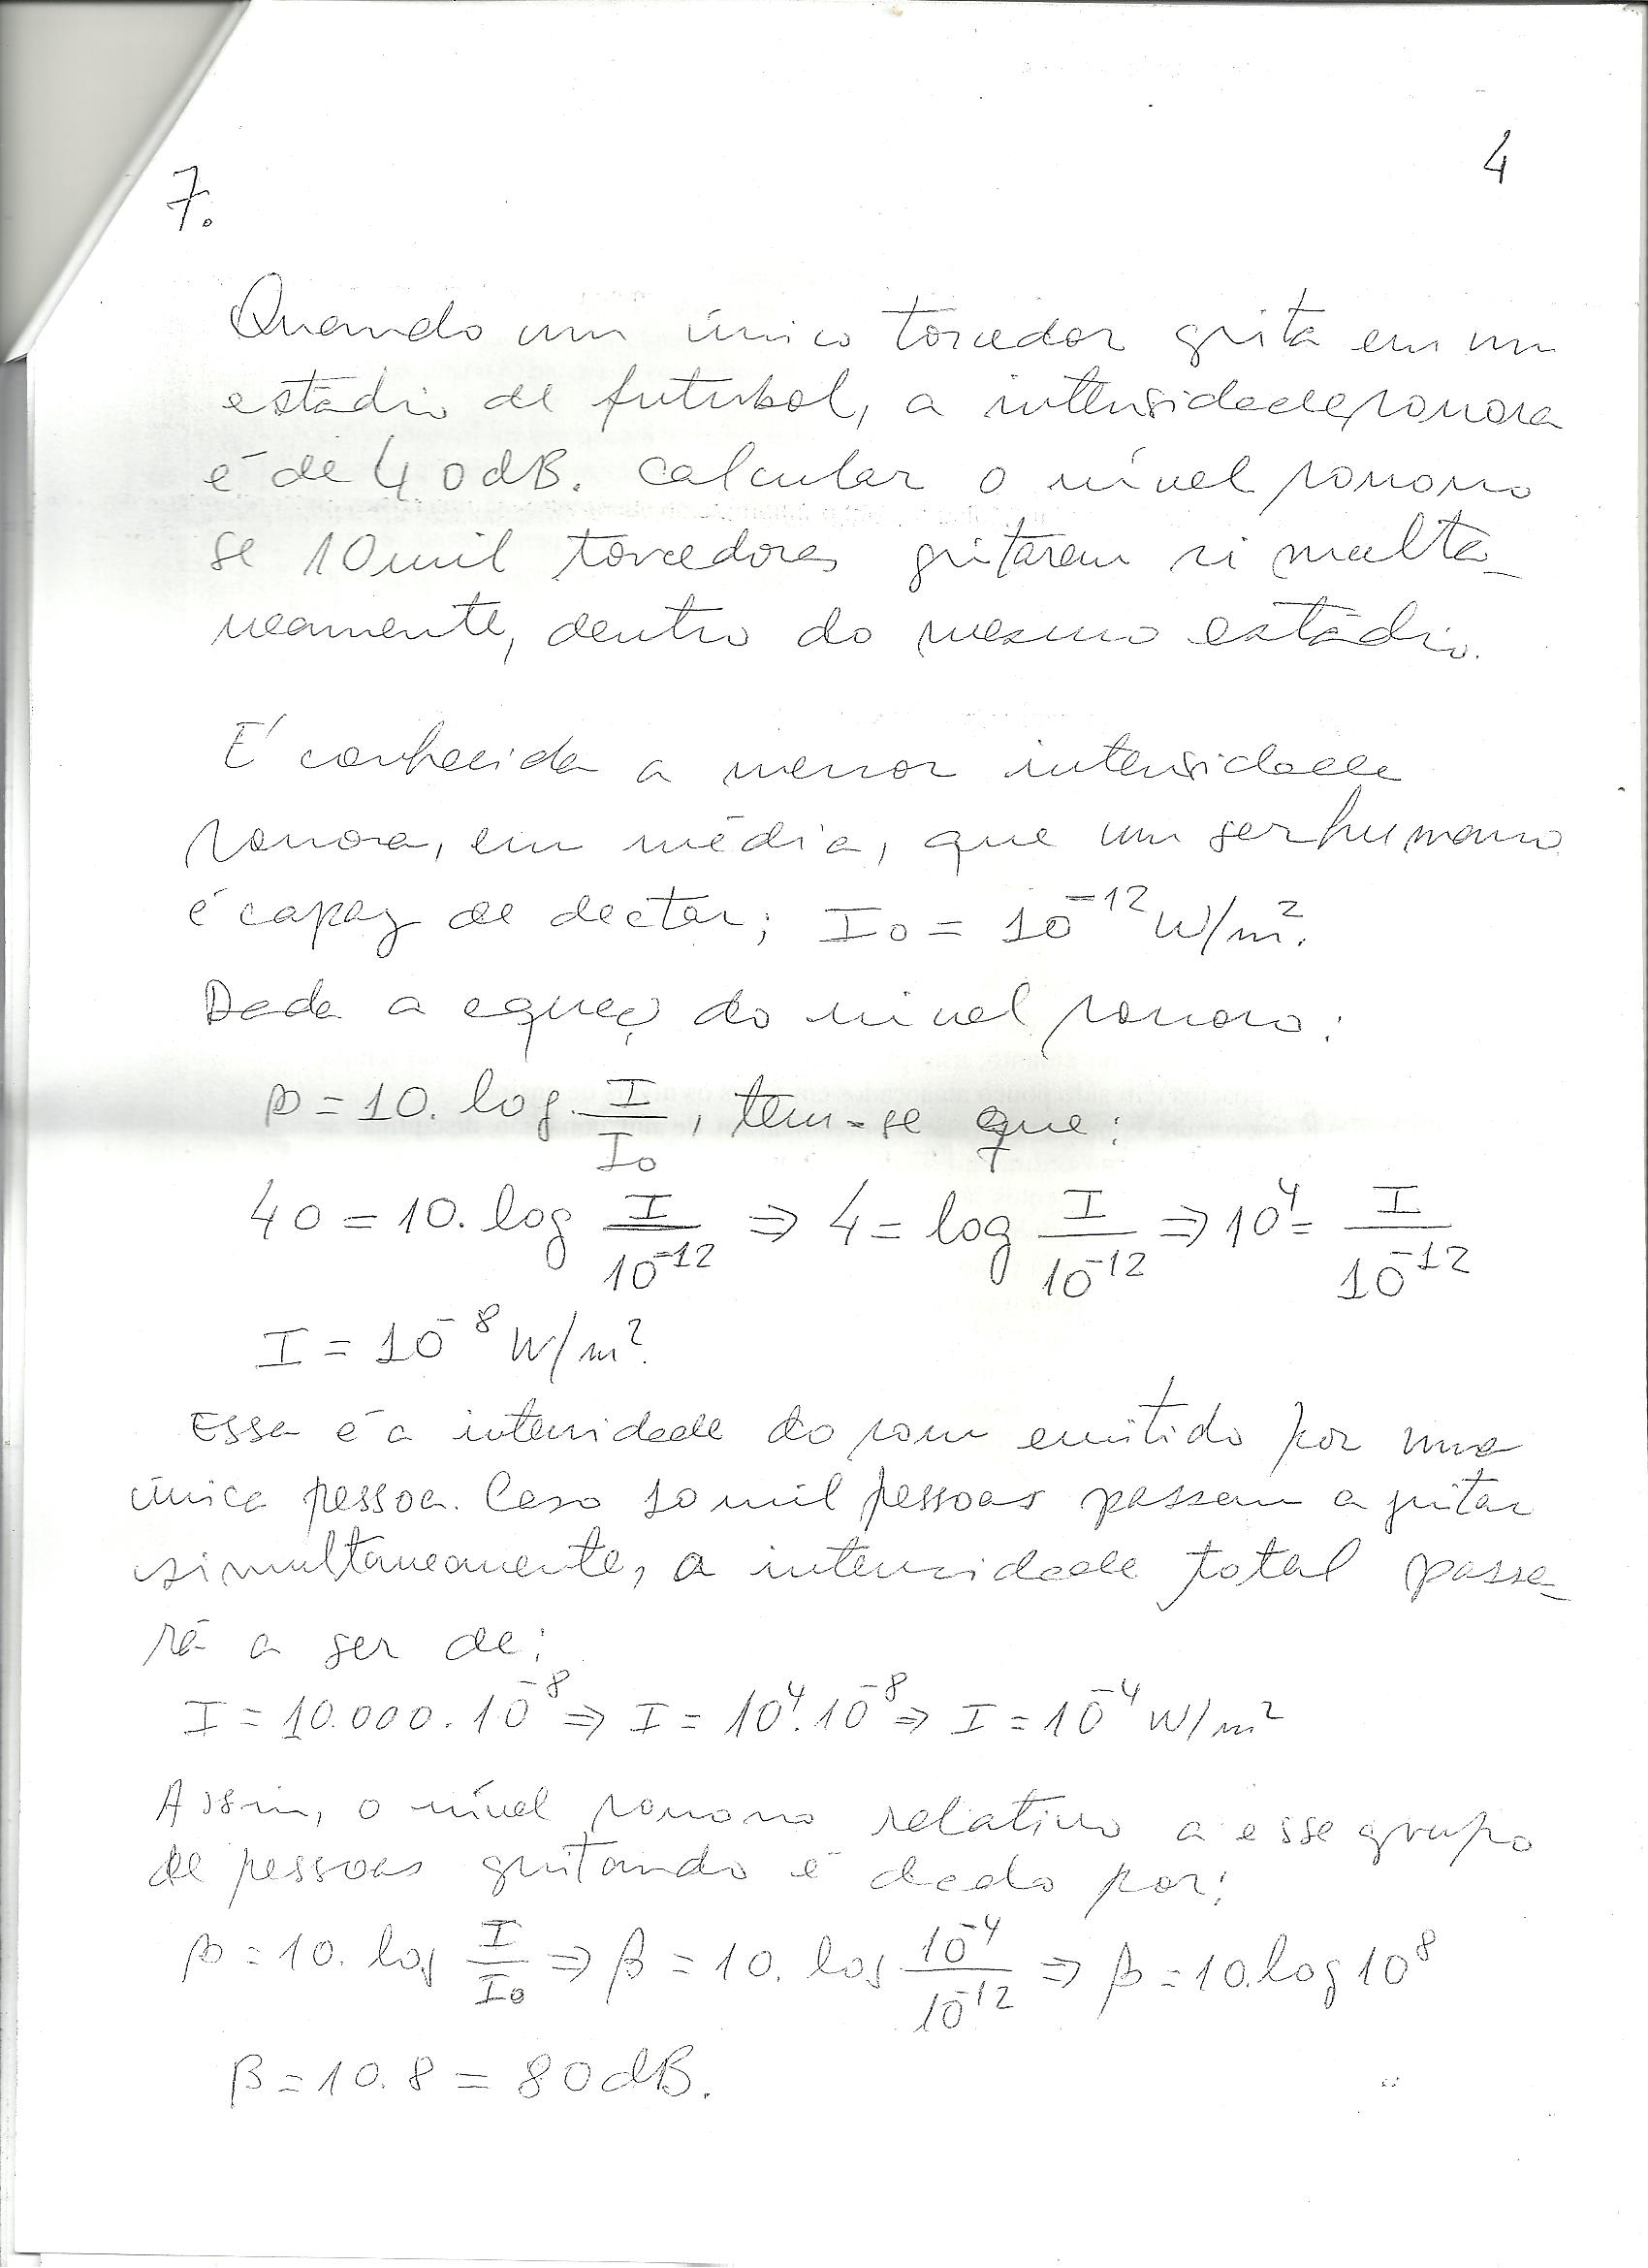 4
7.
Quando um único torcedor grita em um
estádio de futebol, a intensidade sonora
é de 40dB. Calcular o nível sonoro
se 10mil torcedores gritarem simultâ-
neamente, dentro do mesmo estádio.
É conhecida a menor intensidade
sonora, em média, que um ser humano
é capaz de dectar; I₀ = 10⁻¹² W/m².
Dada a equaç do nível sonoro:
β = 10. log. I/I₀, tem-se que:
40 = 10. log I/10⁻¹² ⇒ 4 = log I/10⁻¹² ⇒ 10⁴ = I/10⁻¹²
I = 10⁻⁸ W/m².
Essa é a intensidade do som emitido por uma
única pessoa. Caso 10 mil pessoas passem a gritar
simultaneamente, a intensidade total passa-
rá a ser de:
I = 10.000.10⁻⁸ ⇒ I = 10⁴.10⁻⁸ ⇒ I = 10⁻⁴ W/m²
Assim, o nível sonoro relativo a esse grupo
de pessoas gritando é dado por:
β = 10. log I/I₀ ⇒ β = 10. log 10⁻⁴/10⁻¹² ⇒ β = 10.log 10⁸
β = 10.8 = 80dB.